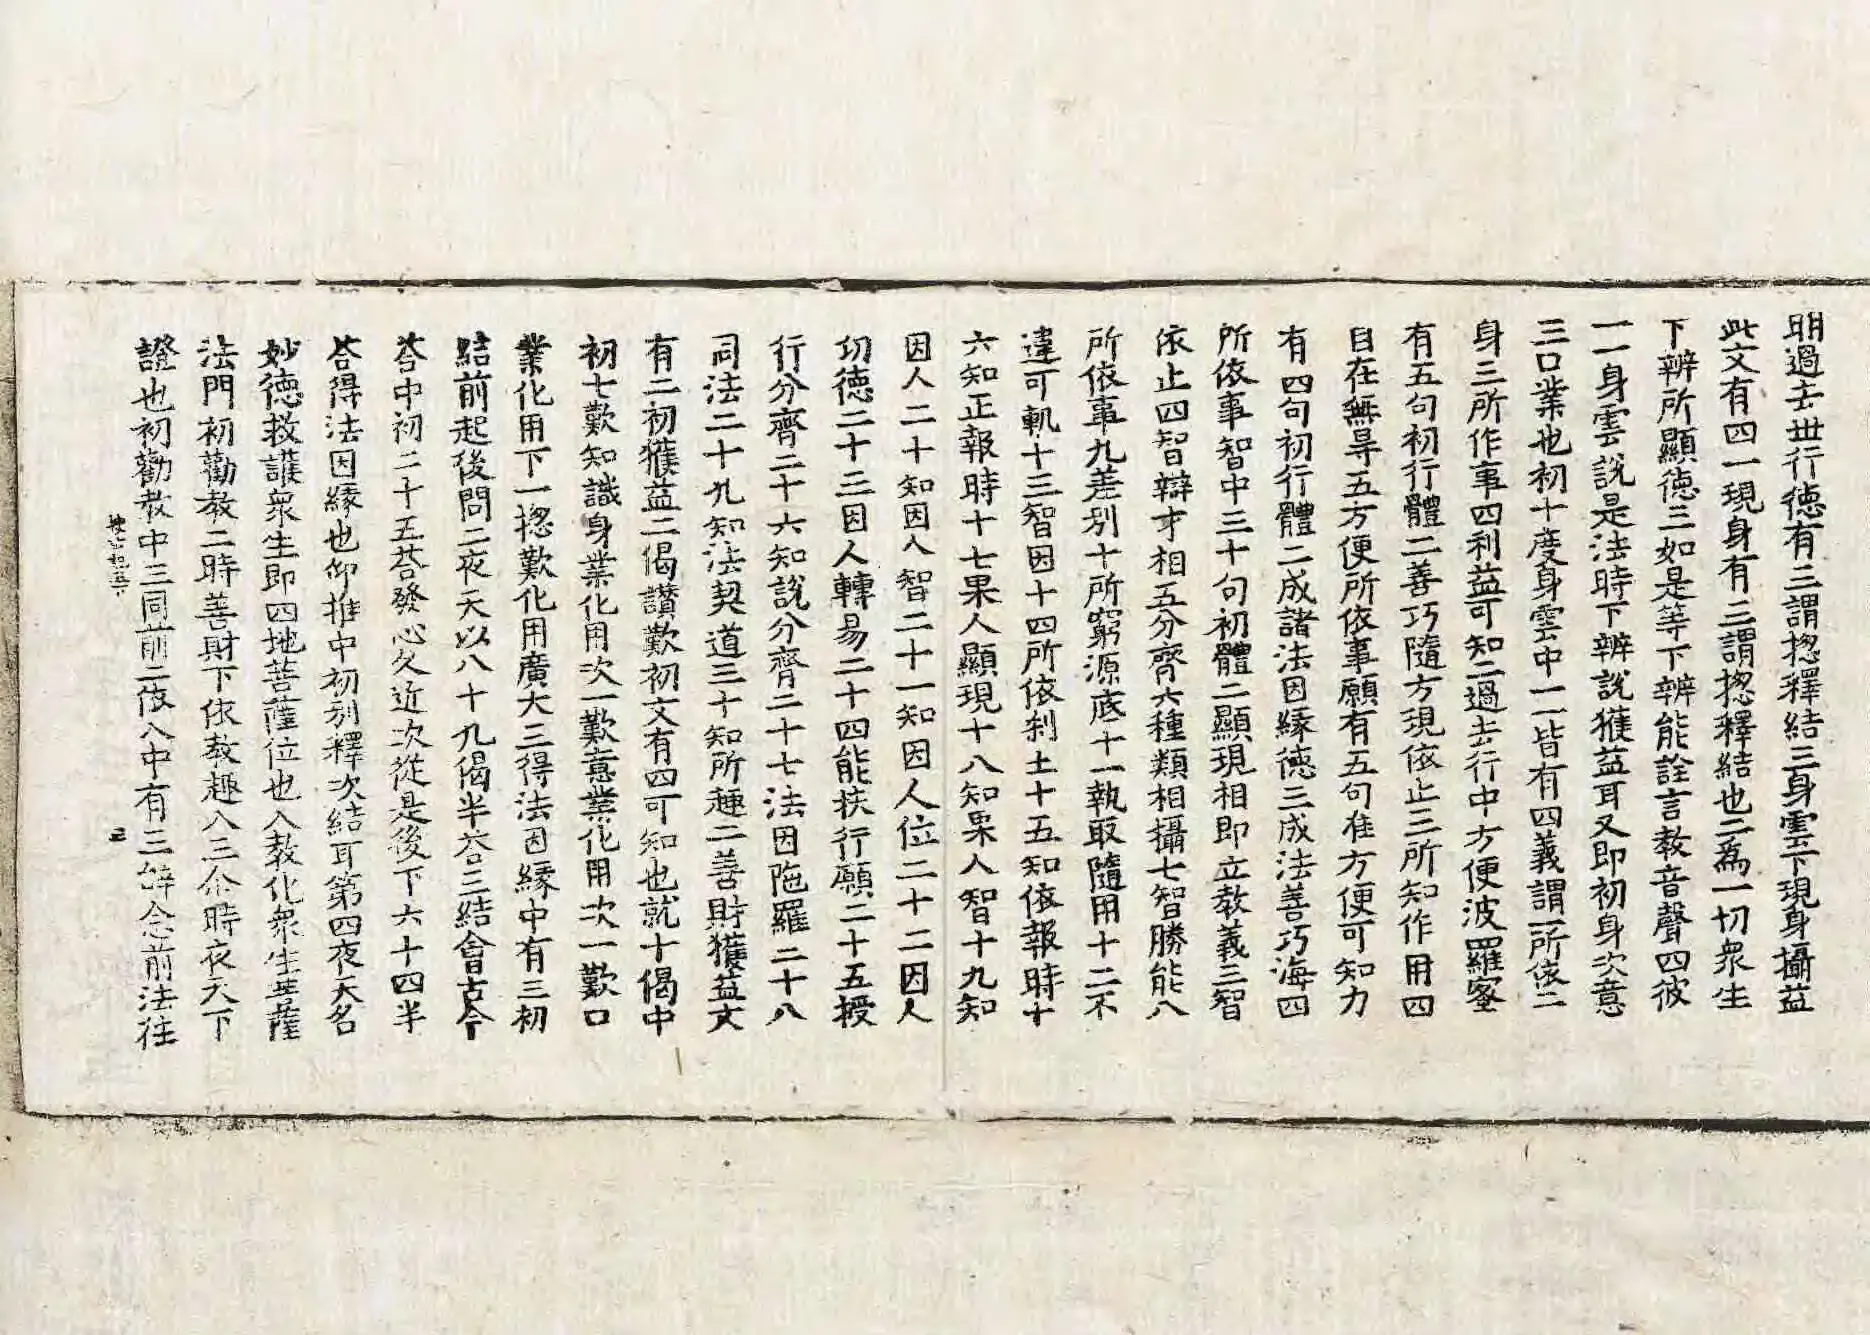 明過去世行德有三謂揔釋結三身雲下現身攝益
此文有四一現身有三謂揔釋結也二爲一切衆生
下辨所顯德三如是等下辨能詮言教音聲四彼
一一身雲說是法時下辨說獲益耳又即初身次意
三口業也初十度身雲中一一皆有四義謂一所依二
身三所作事四利益可知二過去行中方便波羅蜜
有五句初行體二善巧隨方現依止三所知作用四
自在無㝵五方便所依事願有五句准方便可知力
有四句初行體二成諸法因緣德三成法善巧海四
所依事智中三十句初體二顯現相即立教義三智
依止四智辯才相五分齊六種類相攝七智勝能八
所依事九差別十所窮源底十一執取隨用十二不
違可軌十三智因十四所依刹土十五知依報時十
六知正報時十七果人顯現十八知果人智十九知
因人二十知因人智二十一知因人位二十二因人
功德二十三因人轉易二十四能扶行願二十五授
行分齊二十六知說分齊二十七法因陁羅二十八
同法二十九知法契道三十知所趣二善財獲益文
有二初獲益二偈讃歎初文有四可知也就十偈中
初七歎知識身業化用次一歎意業化用次一歎口
業化用下一揔歎化用廣大三得法因緣中有三初
結前起後問二夜天以八十九偈半荅三結會古今
荅中初二十五荅發心久近次從是後下六十四半
荅得法因緣也仰推中初別釋次結耳第四夜天名
妙德救護衆生即四地菩薩位也入教化衆生菩薩
法門初勸教二時善財下依教趣入三尒時夜天下
證也初勸教中三同前二依入中有三辭念前法往